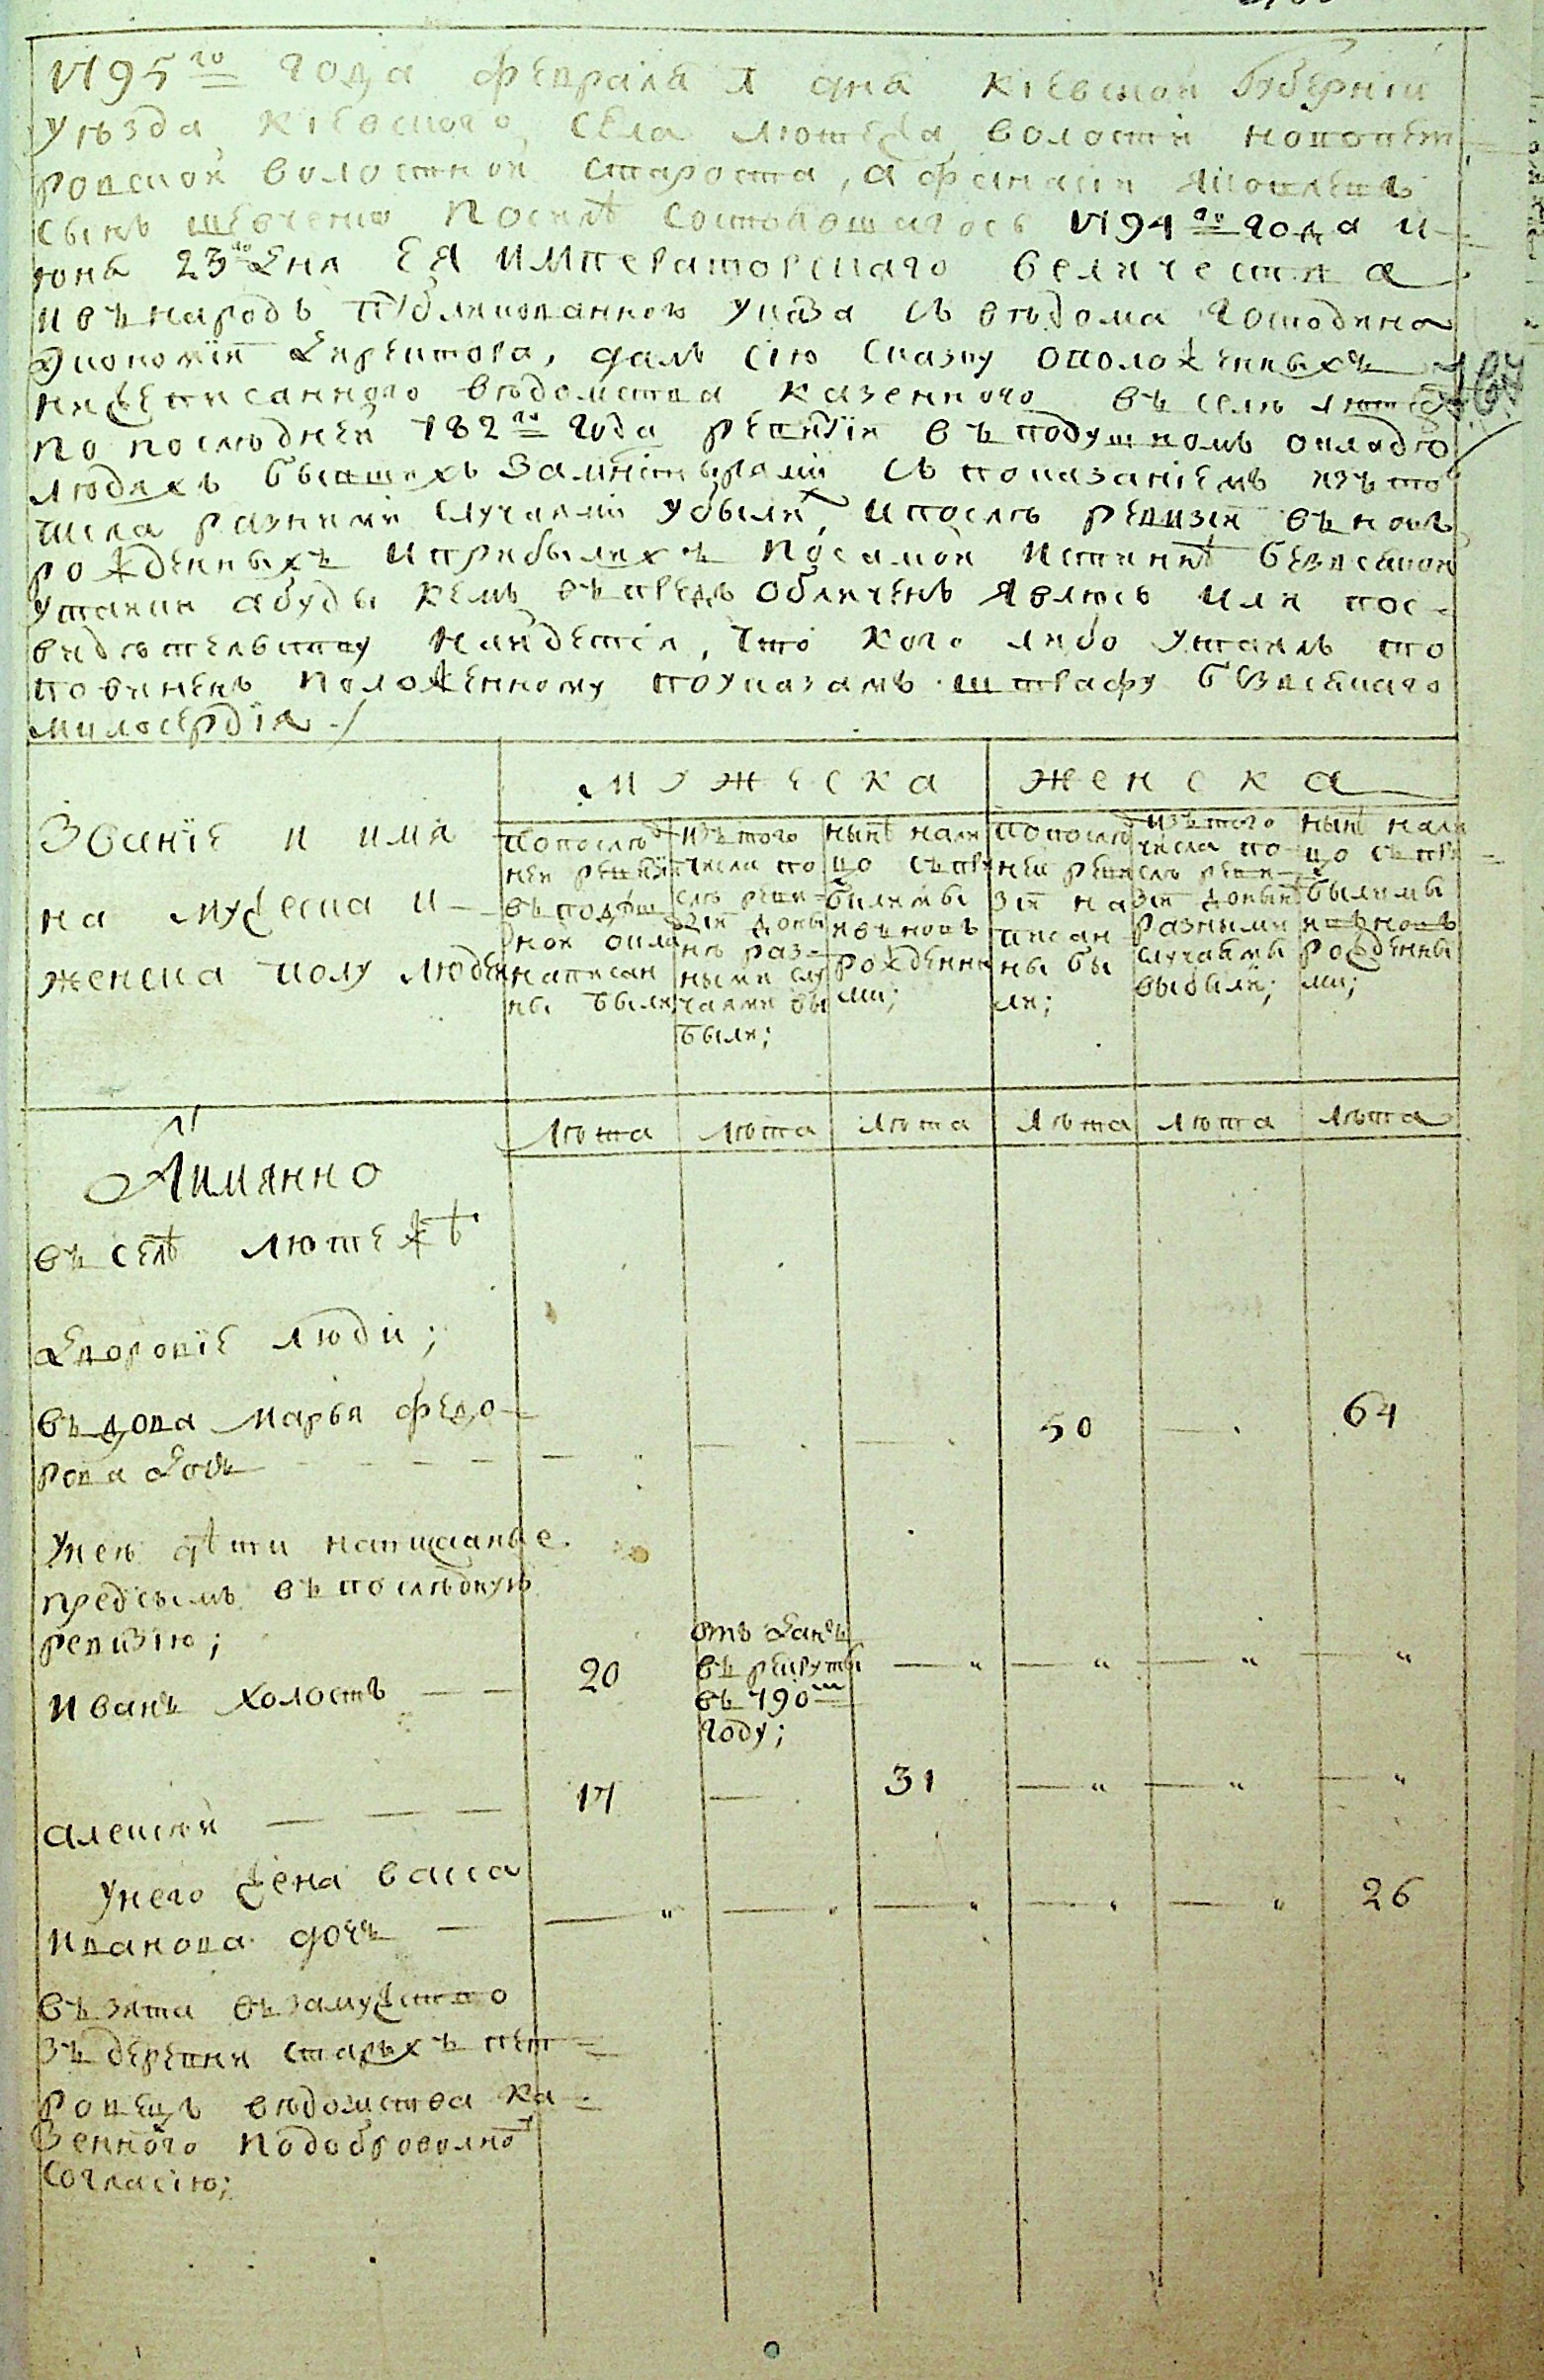 1795го года февраля 1 дня Киевской Губернiи
уѣзда Кiевского села лютежа волости новопет
ровской волостной староста, афанасiй яковлевъ
сынъ шевченко посилѣ состоявшагось 1794го года и
юня 23го дня ЕЯ императорскаго величества
ивъ народъ публикованного указа съ вѣдома господина
економiи директора, далъ сiю сказку оположенныхъ
нижеписанного вѣдомства казенного въ селѣ лютежѣ
по последней 782го года ревизiи въ подушномъ окладѣ
людяхъ бывшихъ замнстырями съ показанiемъ изъ то
числа разними случаями убыли, ипослѣ ревизiи въ новъ
рожденныхъ иприбылихъ посамой истинѣ безвсякой
утайки абуды кемъ въпредь обличенъ явлюсь или пос
видѣтельству найдется, что кого либо утаилъ то
повиненъ положенному поуказамъ штрафу безвсякаго
милосердiя
мужеска женска
Званiе и имя
на мужеска и
женска полу людей
попослѣд
ней ревизiи
въ подуш
ной окла
написан
ны были
изътого
числа по
слѣ реви
зiи доны
нѣ раз
ными слу
чаями вы
были;
нынѣ нали
цо съпри
билими
ивъновъ
рожденны
ми;
попослѣд
ней реви
зiи на
писан
ны бы
ли;
изътого
числа по
слѣ реви
зiи донынѣ
разными
случаями
выбыли;
нынѣ нали
цо съпри
былими
ивъновъ
рожденны
ми;
лѣта лѣта лѣта лѣта лѣта лѣта
Аимянно
въ селѣ лютежѣ
дворовiе люди;
въдова марья федо
рова дочь 50 64
унея дѣти написанье
предсымъ въпослѣдную
ревизiю;
иванъ холостъ 20
отъ данъ
въ рекруты
въ 790м
году;
алексѣй 17 31
унего жена васса
иванова дочь 26
възята въ замужство
зъ деревни старыхъ пет
ровецъ вѣдомства ка
зенного подоброволно
согласiю;